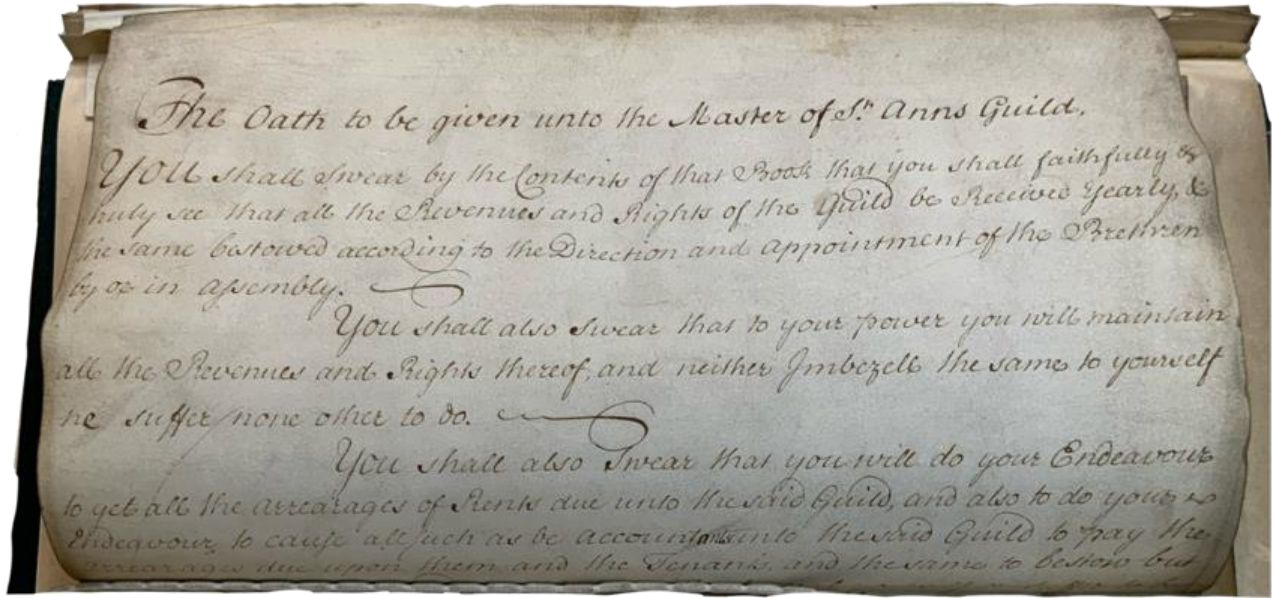 The Oath to be given unto the Master of St. Anns Guild.
YOU shall swear by the Contents of that Book that you shall faithfully &
truly see that all the Revenues and Rights of the Guild be Received yearly, &
the same bestowed according to the Direction and appointment of the Brethren
by or in assembly.
You shall also swear that to your power you will maintain
all the Revenues and Rights thereof, and neither Imbezell the same to yourself
ne suffer none other to do.
You shall also Swear that you will do your Endeavour
to get all the arrearages of Rents due unto the said Guild, and also to do your
Endeavour to cause all such as be accountants unto the said Guild to pay the
arrearages due upon them and the Tenants, and the same to bestow but